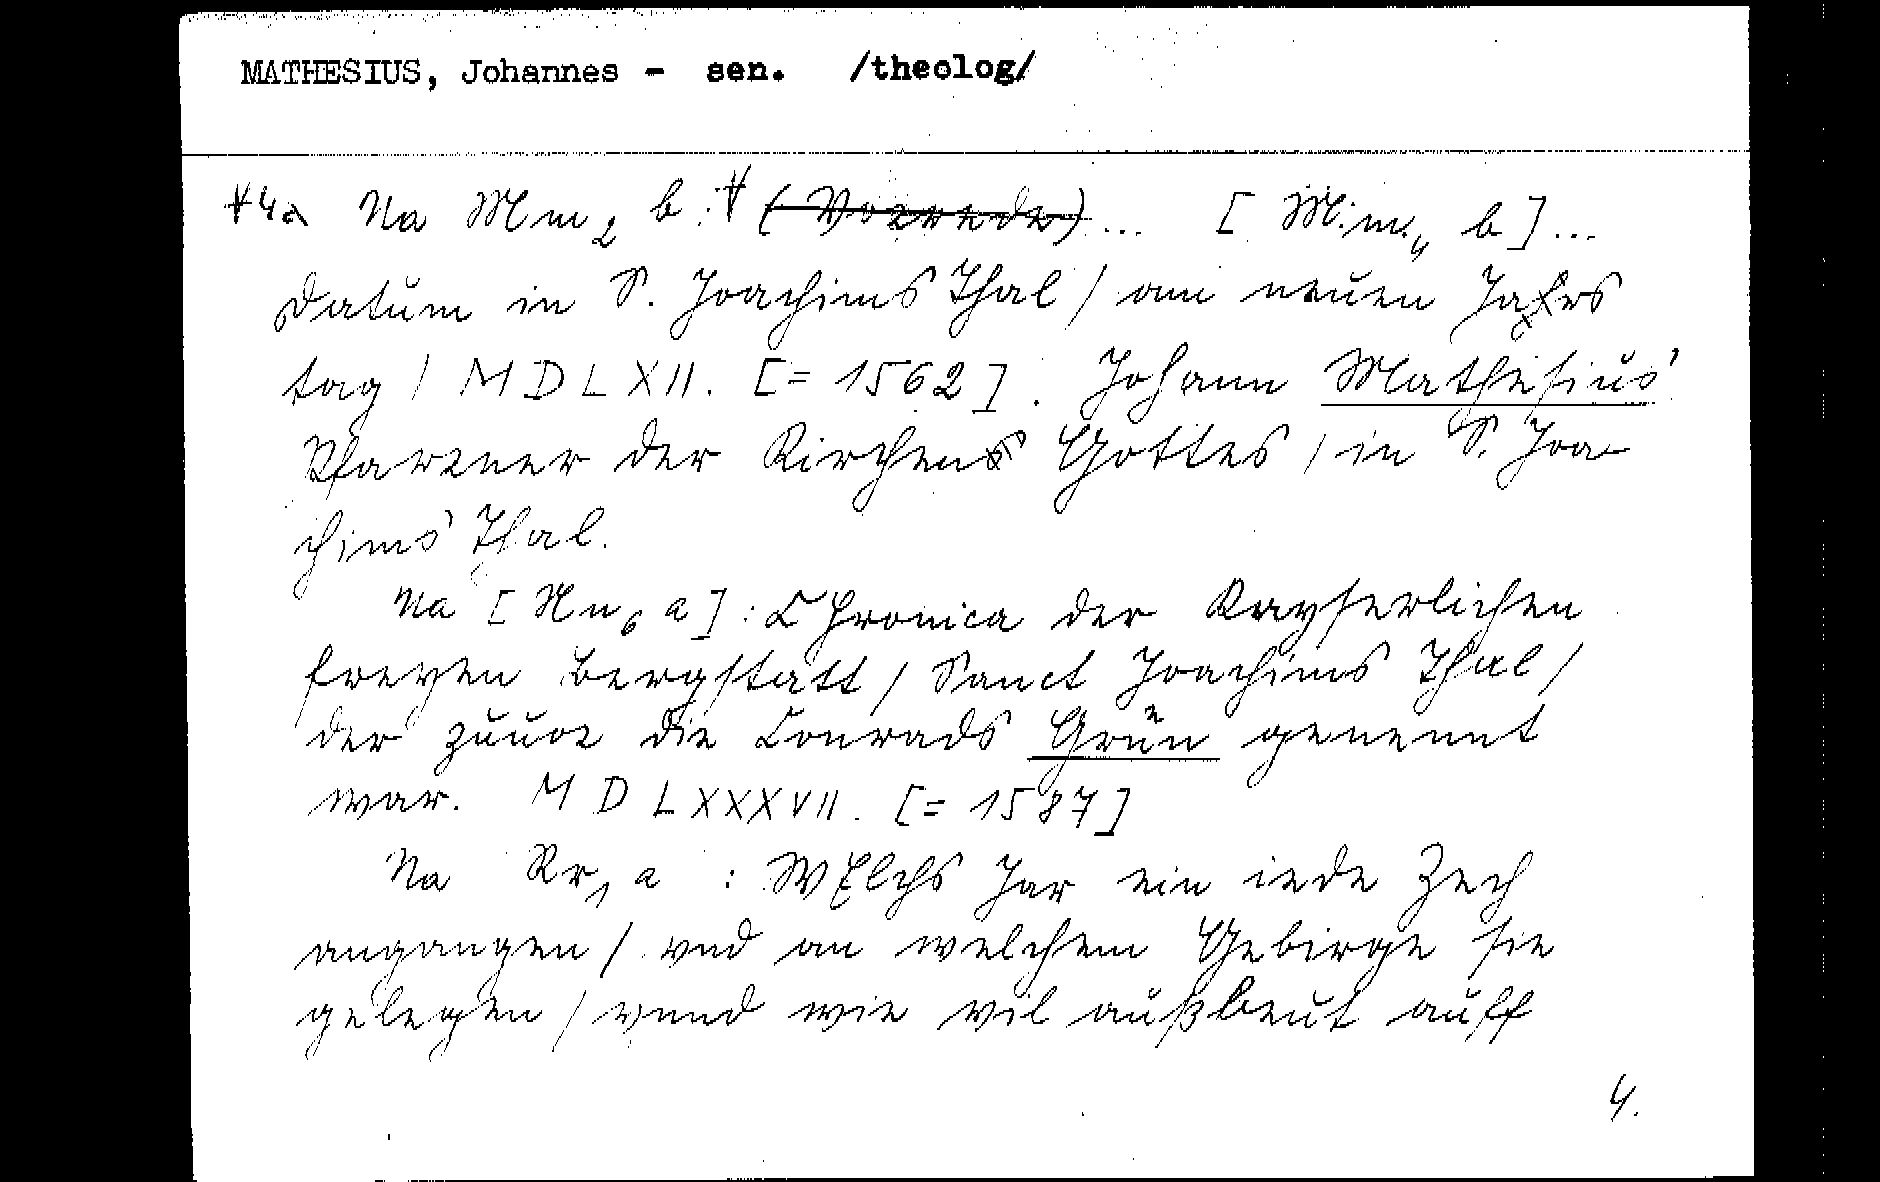 MATHESIUS, Johannes - sen. /theolog/
∀4a Na Mm2 b: ∀ (Vorrede)... [Mm4 b]...
Datum in S. Joachims Thal / am neuen Jahrs
tag / MDLXII. [= 1562]. Johann Mathesius
Pfarrner der Kirchen Gottes / in S. Joa-
chims Thal.
Na [Nn6 a]: CHronica der Kayserlichen
freyen Bergstatt / Sanct Joachims Thal /
der zuuor die Conrads Grün genennt
war. MDLXXXVII. [= 1587]
Na Rr1 a : WElchs Jar ein iede Zech
angangen / vnd an welchem Gebirge sie
gelegen / vnnd wie vil außbeut auff
4.